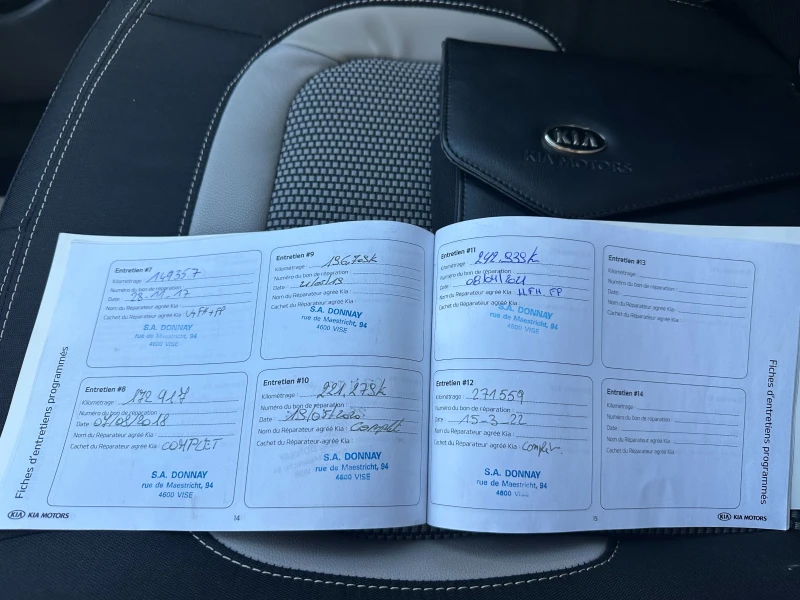 KIA
KIA MOTORS
Fiches d'entretiens programmés
Entretien #7
Kilométrage : 149357
Numéro du bon de réparation :
Date : 28-11-17
Nom du Réparateur agréé Kia :
Cachet du Réparateur agréé Kia :
S.A. DONNAY
rue de Maestricht, 94
4600 VISE
Entretien #8
Kilométrage : 172 917
Numéro du bon de réparation
Date 07/08/2018
Nom du Réparateur agréé Kia :
Cachet du Réparateur agréé Kia : COMPLET
S.A. DONNAY
rue de Maestricht, 94
4600 VISE
Entretien #9
Kilométrage :
Numéro du bon de réparation :
Date :
Nom du Réparateur agréé Kia :
Cachet du Réparateur agréé Kia :
S.A. DONNAY
rue de Maestricht, 94
4600 VISE
Entretien #10
Kilométrage :
Numéro du bon de réparation :
Date :
Nom du Réparateur agréé Kia : Complet
Cachet du Réparateur agréé Kia :
S.A. DONNAY
rue de Maestricht, 94
4600 VISE
KIA KIA MOTORS
14
Entretien #11
Kilométrage : 242.939k
Numéro du bon de réparation :
Date : 08/04/2021
Nom du Réparateur agréé Kia :
Cachet du Réparateur agréé Kia :
S.A. DONNAY
rue de Maestricht, 94
4600 VISE
Entretien #12
Kilométrage : 271559
Numéro du bon de réparation :
Date : 15-3-22
Nom du Réparateur agréé Kia :
Cachet du Réparateur agréé Kia :
S.A. DONNAY
rue de Maestricht, 94
4600
Entretien #13
Kilométrage :
Numéro du bon de réparation :
Date :
Nom du Réparateur agréé Kia :
Cachet du Réparateur agréé Kia :
Entretien #14
Kilométrage :
Numéro du bon de réparation :
Date :
Nom du Réparateur agréé Kia :
Cachet du Réparateur agréé Kia :
15
KIA KIA MOTORS
Fiches d'entretiens programmés